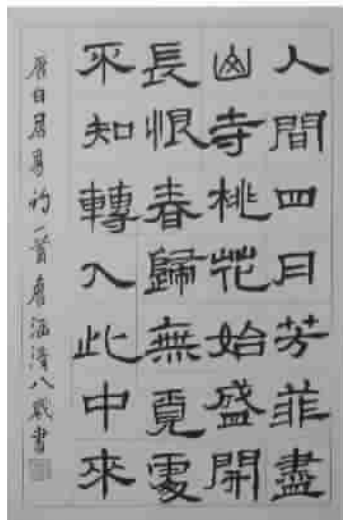 人間四月芳菲盡
山寺桃花始盛開
長恨春歸無覓處
不知轉入此中來
唐白居易詩一首 八歲書